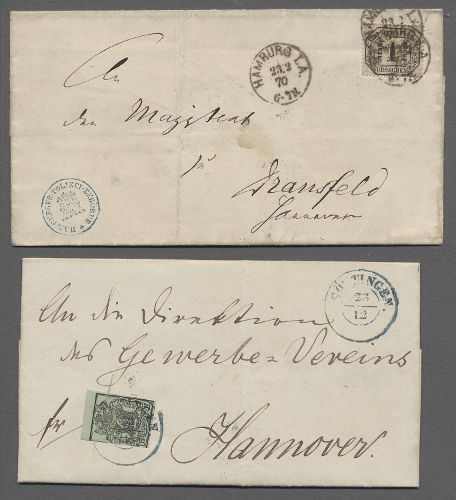 An
den Magistrat
zu
Dransfeld
Hannover
HAMBURG I.A.
23.2
70
6-7N.
1
GROSCHEN
HAMBURGER POLIZEI-BEHÖRDE
GÖTTINGEN
23
12
An die Direktion
des Gewerbe=Vereins
fr
Hannover.